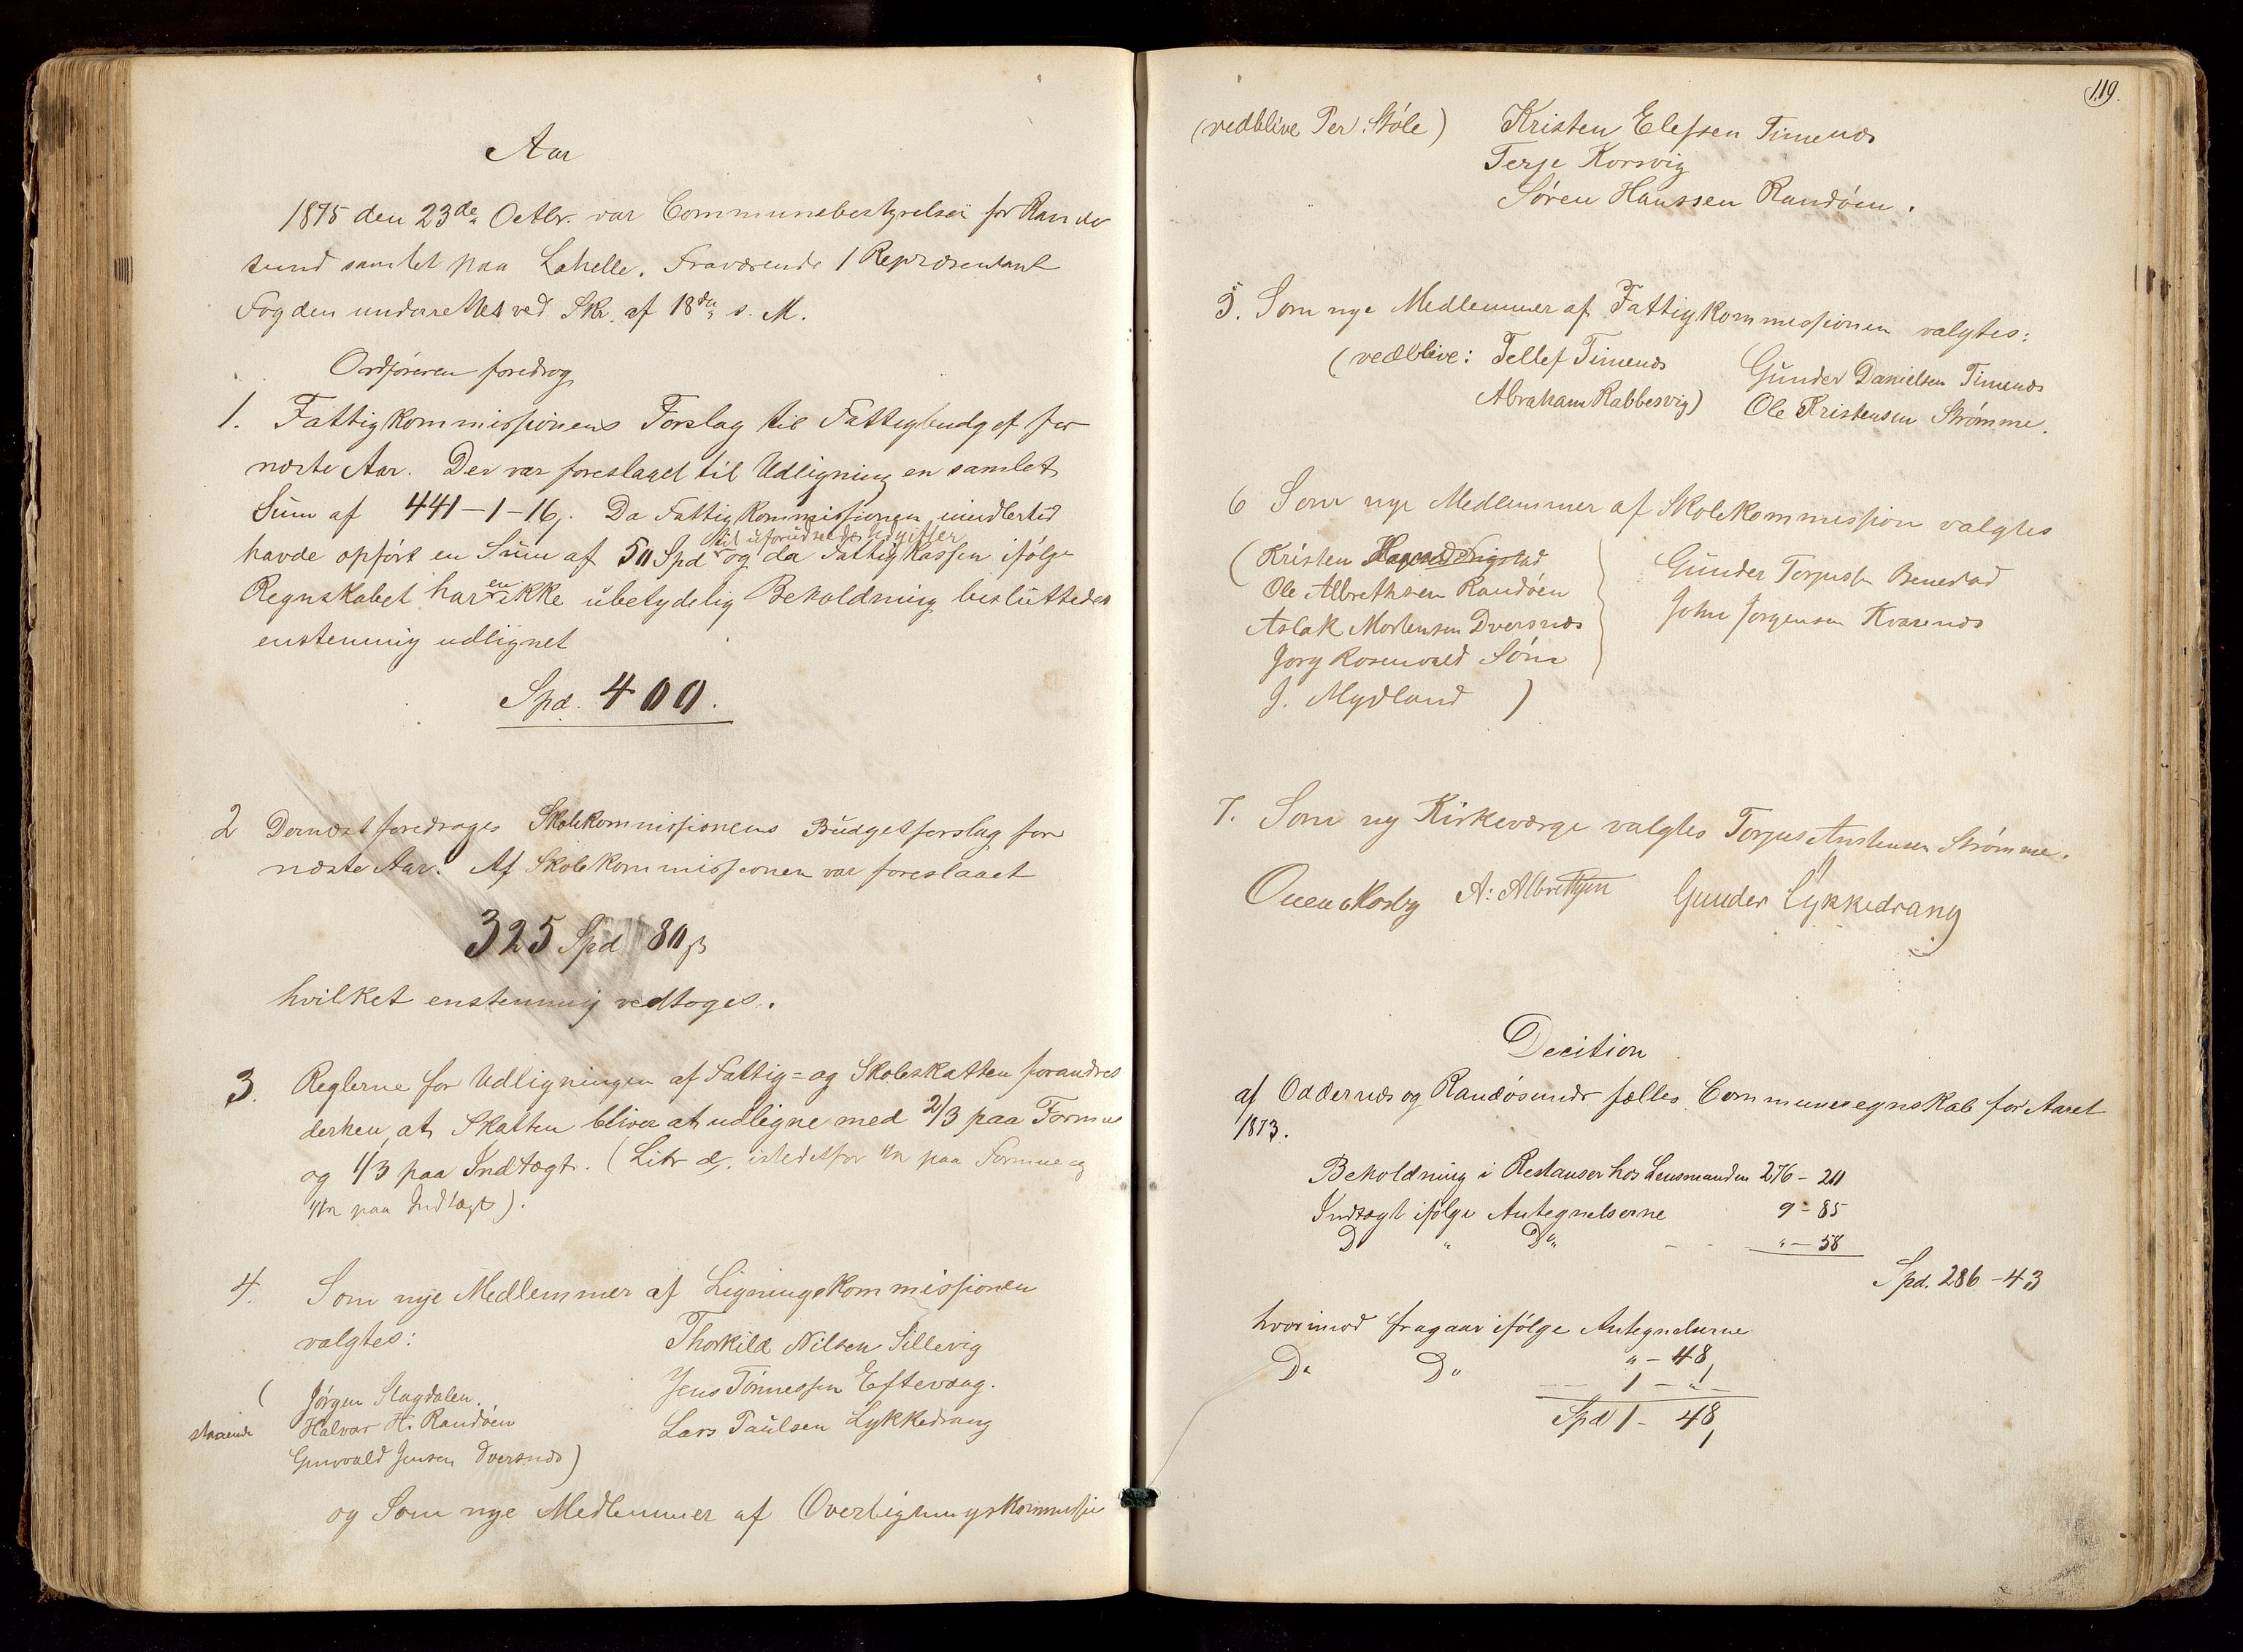 Aar
1875 den 23de Octbr. var Communebestyrelsen for Randø
sund samlet paa Lahelle. Fraværende 1 Repræsentant
Fogden underrettet ved Skr. af 18de s. M.
Ordføreren foredrog
1. Fattigkommissionens Forslag til Fattigbudget for
næste Aar. Der var foreslaaet til Udligning en samlet
Sum af 441-1-16. Da Fattigkommissionen imidlertid
til uforudseede Udgifter
havde opført en Sum af 50 Spd og da Fattigkassen ifølge
Regnskabet har en ikke ubetydelig Beholdning besluttedes
enstemmig udlignet
Spd. 400.
2 Dernæst foredroges Skolekommissionens Budgetforslag for
næste Aar. Af Skolekommissionen var foreslaaet
325 Spd 80 ß
hvilket enstemmig vedtoges.
3. Reglerne for Udligningen af Fattig= og Skoleskatten forandres
derhen, at Skatten bliver at udligne med 2/3 paa Formue
og 1/3 paa Indtægt. (Litr d. istedetfor paa Formue og
paa Indtægt).
4. Som nye Medlemmer af Ligningskommissionen
valgtes: Thorkild Nilsen Sillevig
( Jørgen Slagdalen. Jens Tønnessen Eftevaag.
staaende Halvor H. Randøen Lars Paulsen Lykkedrang
Gunvald Jensen Dversnæs)
og Som nye Medlemmer af Overligningskommissio
119.
(vedblive Per Støle) Kristen Elefsen Timenæs
Terje Korsvig
Søren Hanssen Randøen.
5. Som nye Medlemmer af Fattigkommissionen valgtes:
(vedblive: Tellef Timenæs Gunder Danielsen Timenæs
Abraham Rabbesvig) Ole Kristensen Strømme.
6 Som nye Medlemmer af Skolekommission valgtes
(Kristen Gunder Torjussen Benestad
Ole Albrethsen Randøen
Aslak Mortensen Dversnæs John Jørgensen Kvarenæs
Jørg Rosenvald Søm
J. Mydland )
7. Som ny Kirkeværge valgtes Torjus Anstensen Strømme.
Ouen Kosby A: Albrethsen Gunder Lykkedrang
Decition
af Oddernæs og Randøsunds fælles Communeregnskab for Aaret
1873.
Beholdning i Restanser hos Lensmanden 276 - 20
Indtægt ifølge Antegnelserne 9 - 85
Do " Do " - 58
Spd. 286 - 43
hvorimod fragaar ifølge Antegnelserne
" - 48
Do Do 1 - " -
Spd 1 - 48